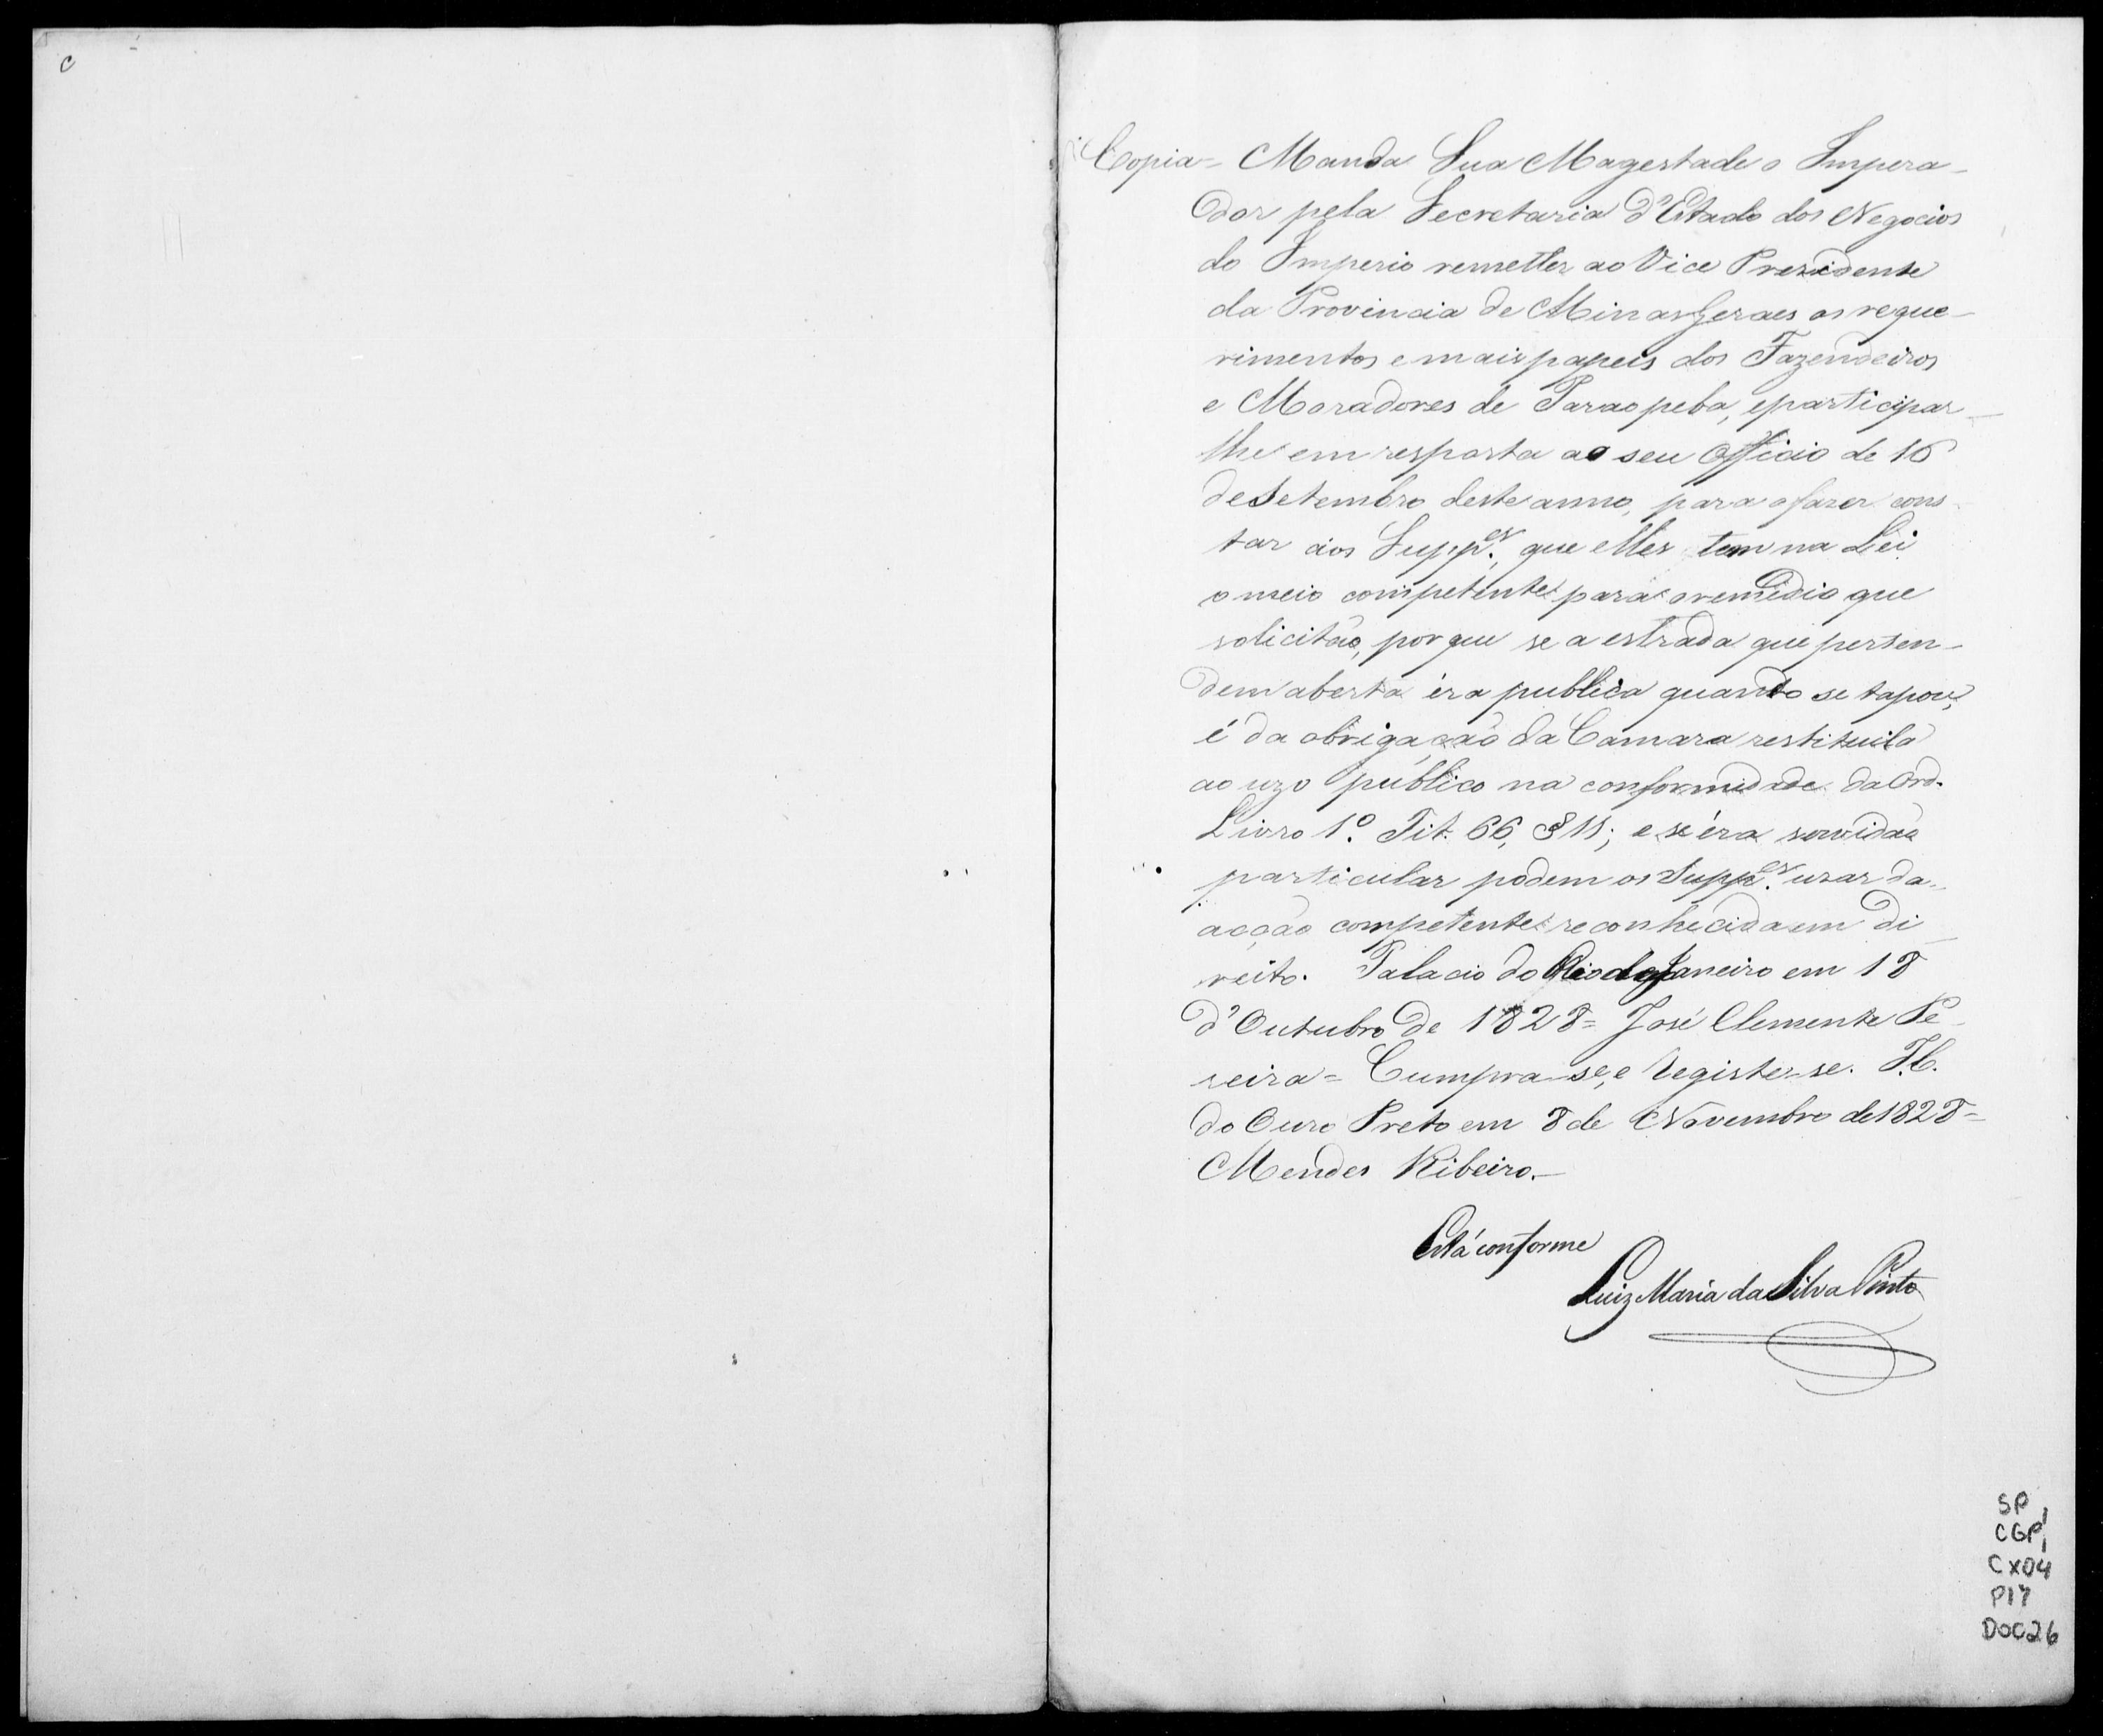 Copia = Manda Sua Magestade o Impera-
dor pela Secretaria d'Estado dos Negocios
do Imperio remetter ao Vice Presidente
da Provincia de Minas Geraes os reque-
rimentos e mais papeis dos Fazendeiros
e Moradores de Paraopeba, e participar-
lhe em resposta ao seu Officio de 16
de Setembro deste anno, para o fazer cons-
tar aos Supp.es, que elles tem na Lei
o meio competente para o remedio que
solicitão, por que se a estrada que perten-
dem aberta éra publica quando se tapou,
é da obrigação da Camara restituila
ao uzo publico na conformidade da Ord.
Livro 1.º Tit. 66, § 11; e se éra servidão
particular podem os Supp.es usar da
acção competente reconhecida em di-
reito. Palacio do Rio de Janeiro em 18
d'Outubro de 1828 = José Clemente Pe-
reira = Cumpra-se, e Registe-se. I.C.
do Ouro Preto em 8 de Novembro de 1828 =
Mendes Ribeiro. —
Está conforme
Luiz Maria da Silva Pinto
SP,
CGP,
CX04
P17
DOC26